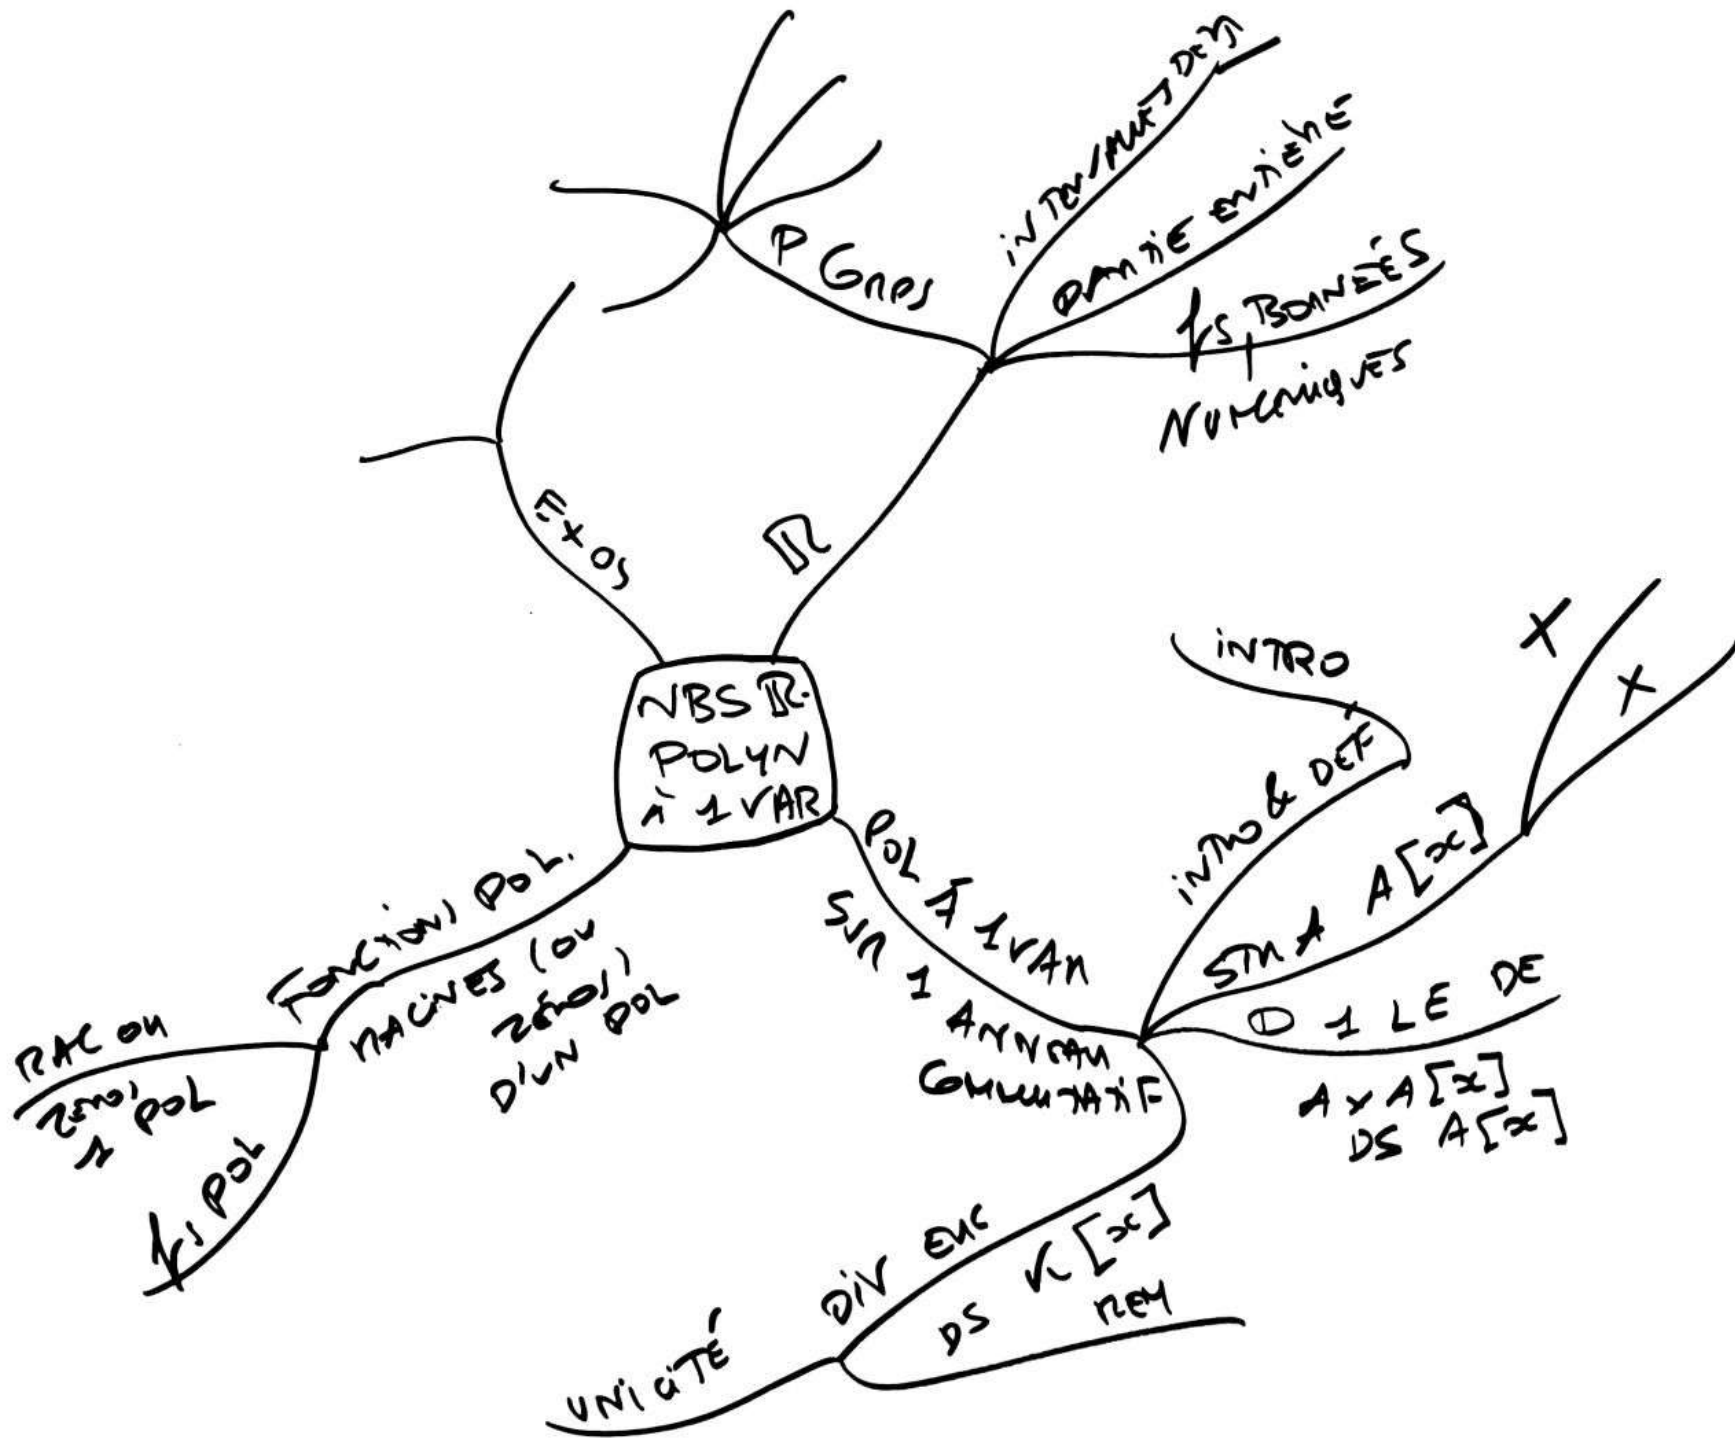 NBS ℝ
POLYN
À 1 VAR
EXOS
ℝ
P GRPS
PARTIE ENTIÈRE
fs BORNÉES
NUMERIQUES
POL À 1 VAR
SUR 1 ANNEAU
COMMUTATIF
INTRO & DEF
INTRO
STR A[x]
X
X
D 1 LE DE
A x A[x]
DS A[x]
DIV EUC
DS K[x]
REM
UNICITÉ
FONCTIONS POL.
RACINES (OU
ZÉROS)
D'UN POL
RAC OU
ZÉROS
1 POL
fs POL